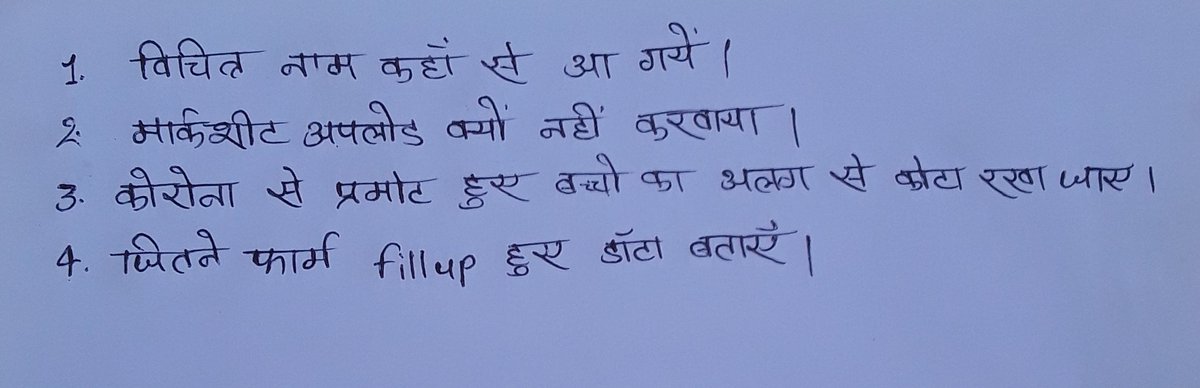 1. विचित्र नाम कहाँ से आ गयें।
2. मार्कशीट अपलोड क्यों नहीं करवाया।
3. कोरोना से प्रमोट हुए बच्चो का अलग से कोटा रखा जाए।
4. जितने फार्म fillup हुए डॉटा बताएँ।